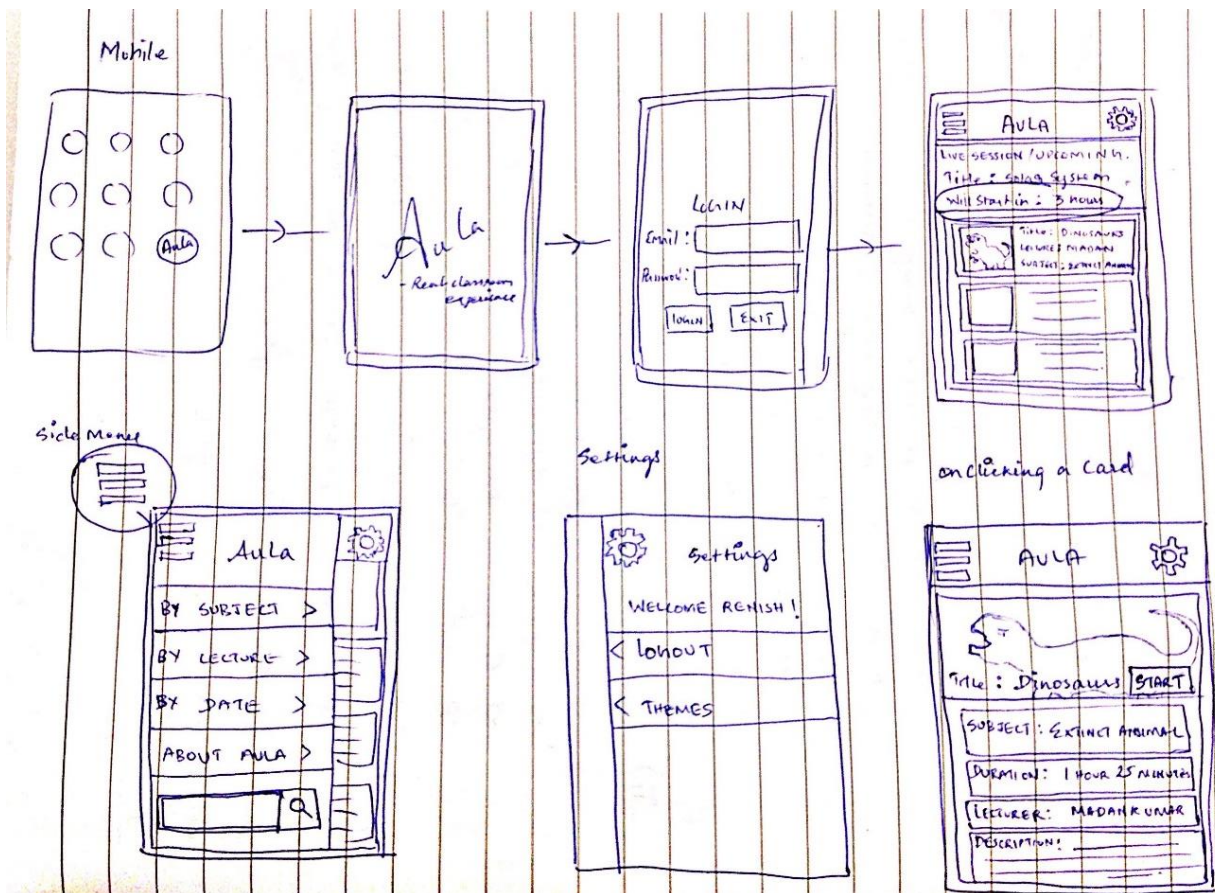 Mobile
Aula
Aula
- Real classroom
experience
LOGIN
Email:
Password:
LOGIN
EXIT
AULA
LIVE SESSION / UPCOMING.
Title : Solar System
Will Start in : 3 hours
TITLE: DINOSAURS
LECTURE: MADAN
SUBJECT: EXTINCT ANIMAL
Side Menu
Aula
BY SUBJECT >
BY LECTURE >
BY DATE >
ABOUT AULA >
Settings
Settings
WELCOME RENISH!
< LOGOUT
< THEMES
on clicking a Card
AULA
Title : Dinosaurs
START
SUBJECT : EXTINCT ANIMAL
DURATION: 1 HOUR 25 MINUTES
LECTURER: MADANKUMAR
DESCRIPTION: